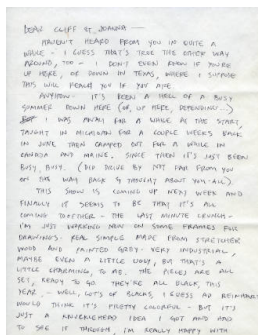 DEAR CLIFF ET JOANNA -
HAVEN'T HEARD FROM YOU IN QUITE A
WHILE - I GUESS THAT'S TRUE THE OTHER WAY
AROUND, TOO - I DON'T EVEN KNOW IF YOU'RE
UP HERE, OR DOWN IN TEXAS, WHERE I SUPPOSE
THIS WILL REACH YOU IF YOU ARE
ANYHOW - IT'S BEEN A HELL OF A BUSY
SUMMER DOWN HERE (OR, UP HERE, DEPENDING...)
I WAS AWAY FOR A WHILE AT THE START,
TAUGHT IN MICHIGAN FOR A COUPLE WEEKS BACK
IN JUNE THEN CAMPED OUT FOR A WHILE IN
CANADA AND MAINE. SINCE THEN IT'S JUST BEEN
BUSY, BUSY. (DID DRIVE BY NOT FAR FROM YOU
ON THE WAY BACK & THOUGHT ABOUT YOU-ALL)
THIS SHOW IS COMING UP NEXT WEEK AND
FINALLY IT SEEMS TO BE THAT IT'S ALL
COMING TOGETHER - THE LAST MINUTE CRUNCH -
I'M JUST WORKING NOW ON SOME FRAMES FOR
DRAWINGS. REAL SIMPLE MADE FROM STRETCHER
WOOD AND PAINTED GREY. VERY INDUSTRIAL,
MAYBE EVEN A LITTLE UGLY, BUT THAT'S A
LITTLE CHARMING, TO ME. THE PIECES ARE ALL
SET, READY TO GO. THEY'RE ALL BLACK THIS
YEAR - WELL, LOTS OF BLACKS, I GUESS AD REINHARDT
WOULD THINK IT'S PRETTY COLORFUL - BUT IT'S
JUST A KNUCKLEHEAD IDEA I GOT AND HAD
TO SEE IT THROUGH. I'M REALLY HAPPY WITH